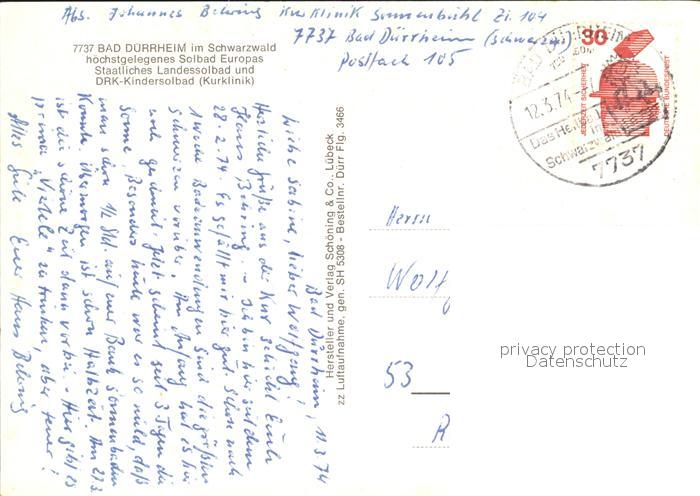 Abs. Johannes Behring Kurklinik Sonnenbühl Zi. 104
7737 Bad Dürrheim (Schwarzw.)
Postfach 105
7737 BAD DÜRRHEIM im Schwarzwald
höchstgelegenes Solbad Europas
Staatliches Landessolbad und
DRK-Kindersolbad (Kurklinik)
30
JEDERZEIT SICHERHEIT
DEUTSCHE BUNDESPOST
BAD DÜRRHEIM
12.3.74
Das Heilbad
im
Schwarzwald
7737
Bad Dürrheim, 11.3.74
Liebe Sabine, lieber Wolfgang!
Herzliche Grüße aus der Kur schickt Euch
Hans Behring. – Ich bin hier seit dem
28.2.74. Es gefällt mir hier gut. Schon nach
1 Woche Badeanwendungen sind die größten
Schmerzen vorüber. Am Anfang hat es hier
noch geschneit. Jetzt scheint seit 3 Tagen die
Sonne. Besonders heute war es so mild, daß
man schon 1/2 Std. auf einer Bank sonnenbaden
konnte. Übermorgen ist schon Halbzeit. Am 27.3.
ist die schöne Zeit dann vorbei. – Hier gibt es
prima "Viertele" zu trinken, aber teuer!
Alles Gute Euer Hans Behring
Hersteller und Verlag Schöning & Co., Lübeck
zz Luftaufnahme, gen. SH 5308 - Bestellnr. Dürr Flg. 3466
Herrn
Wolf
53
R
privacy protection
Datenschutz